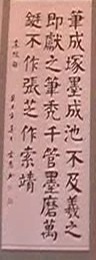 筆成塚墨成池不及羲之
即獻之筆禿千管墨磨萬
鋌不作張芝作索靖